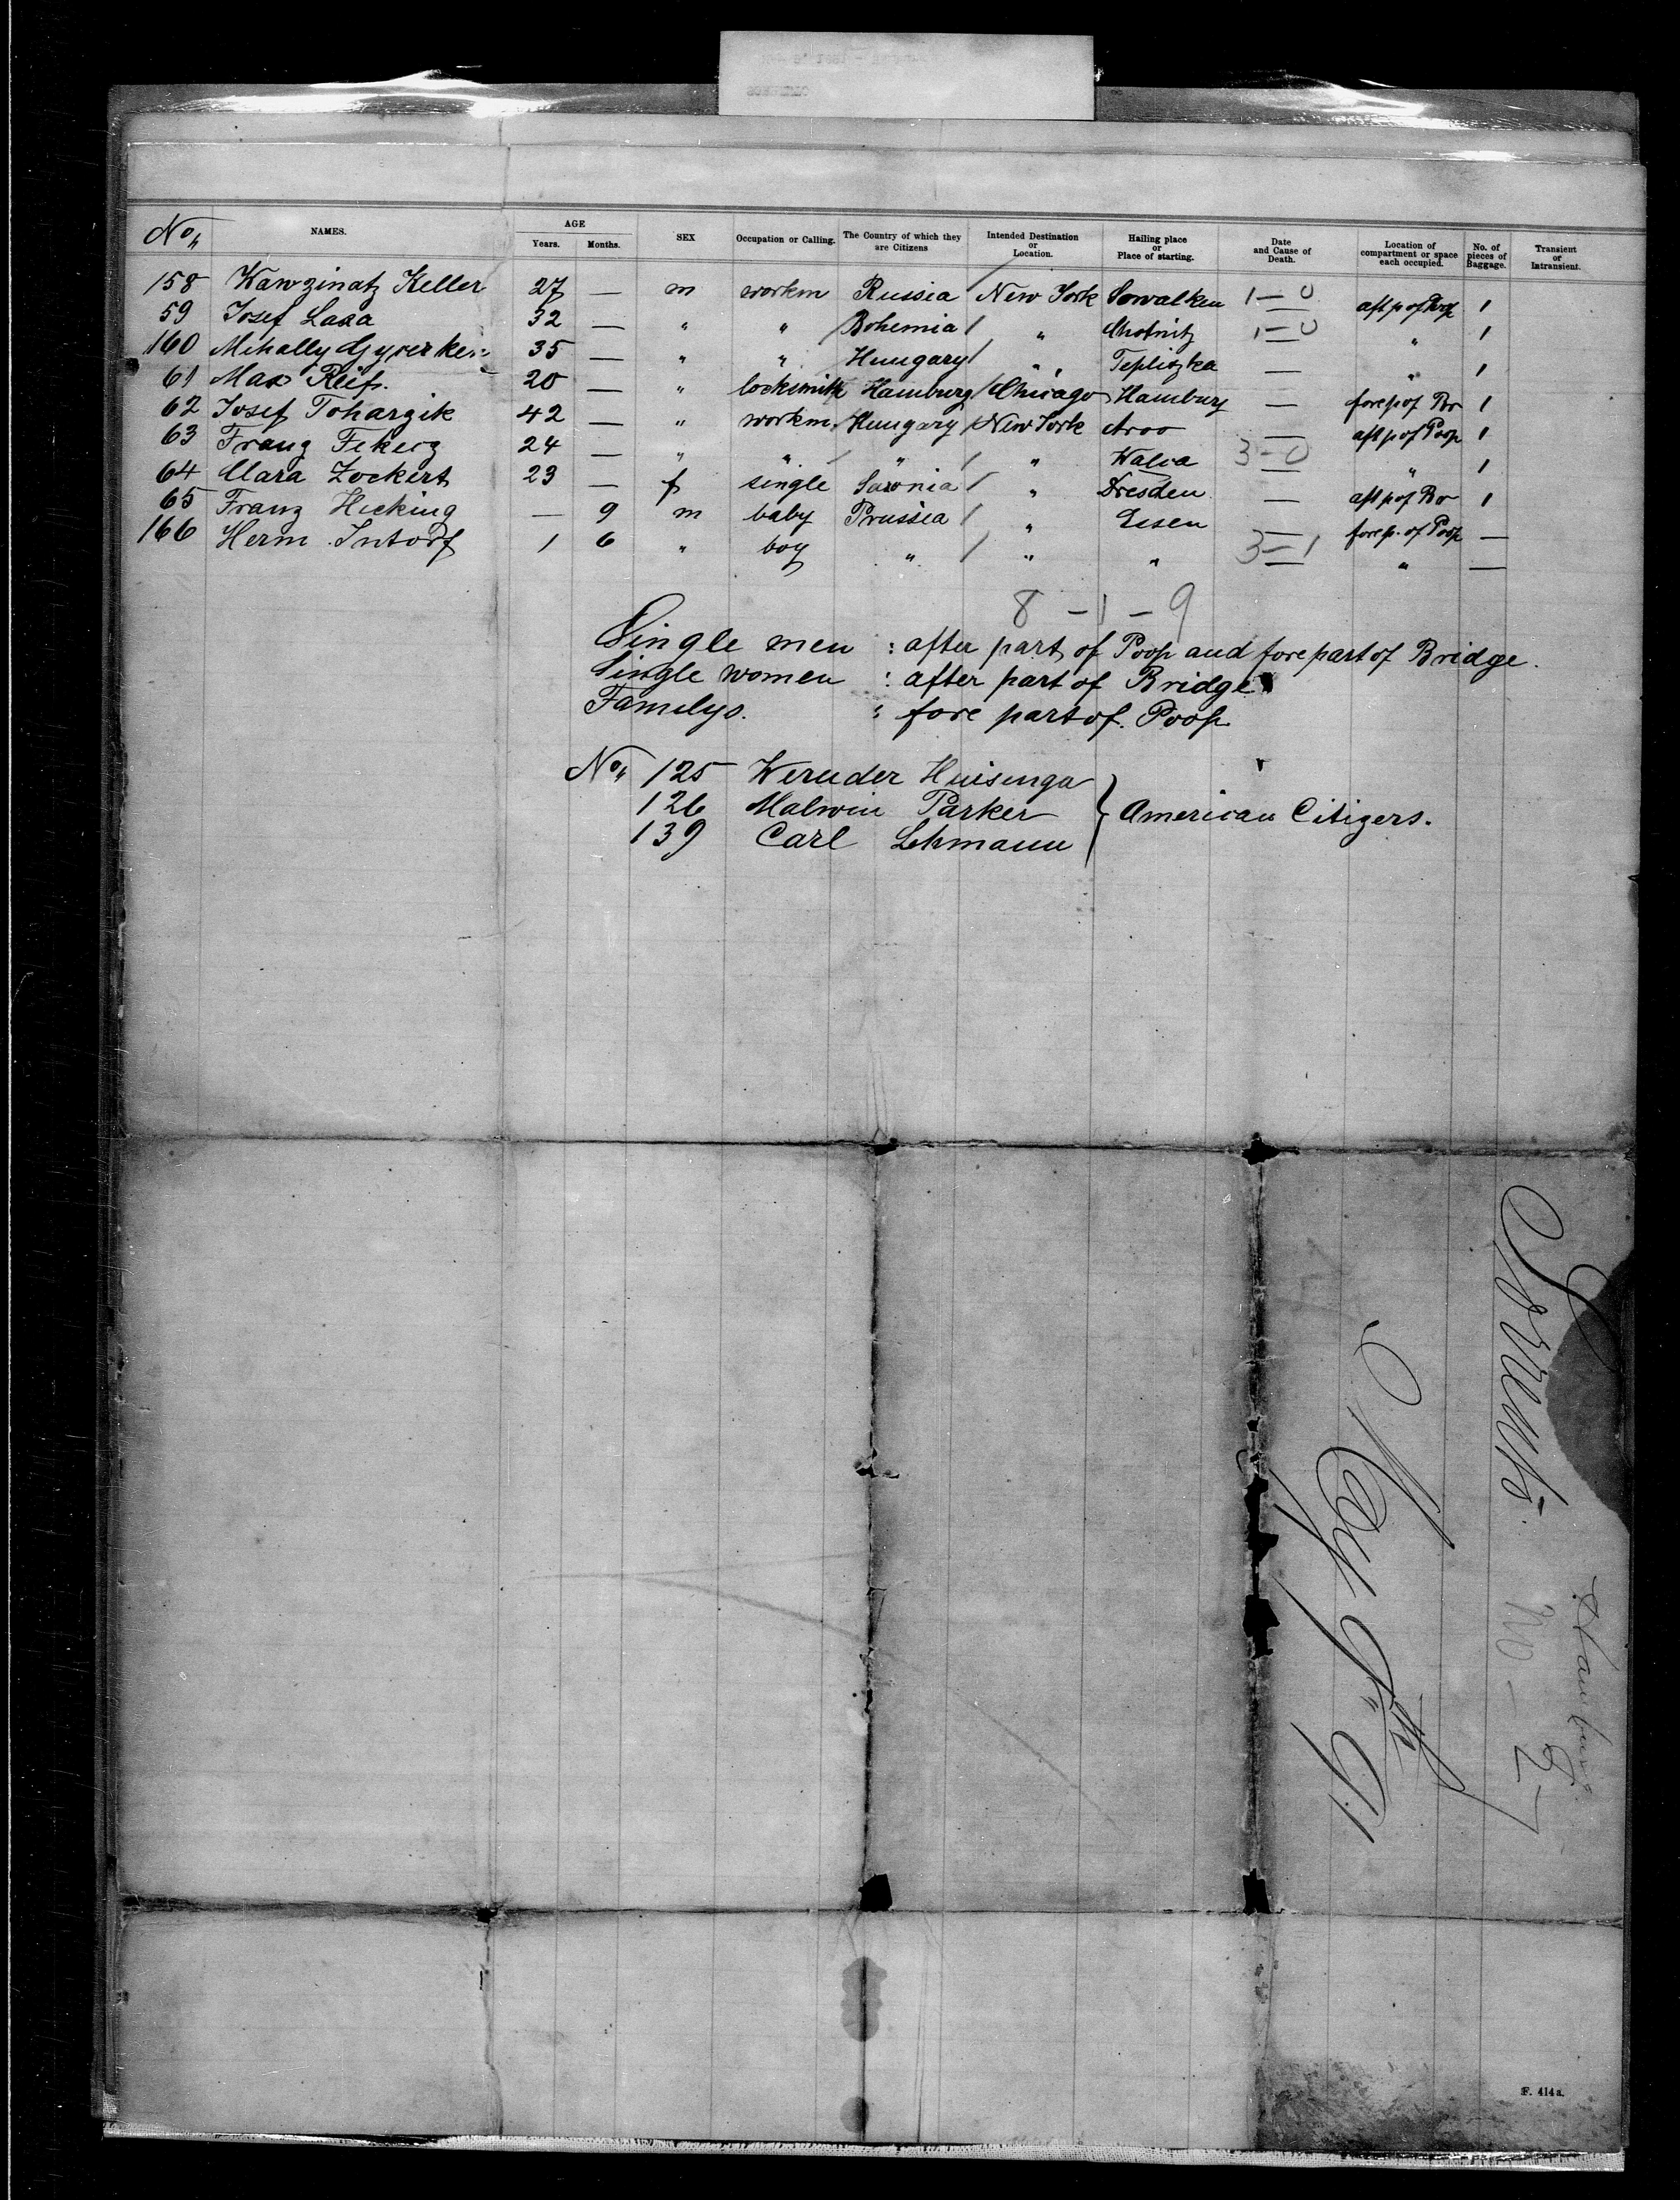 No. NAMES. AGE Years. Months. SEX Occupation or Calling. The Country of which they are Citizens Intended Destination or Location. Hailing place or Place of starting. Date and Cause of Death. Location of compartment or space each occupied. No. of pieces of Baggage. Transient or Intransient.
158 Wawzinatz Keller 27 — m workm Russia New York Sowalken 1—0 aft p of Poop 1
59 Josef Lasa 32 — " " Bohemia / " Chotnitz 1—0 " 1
160 Mihally 35 — " " Hungary / " Teplitzka — " 1
61 Max Reif. 20 — " locksmith Hamburg / Chicago Hamburg — fore p of Br 1
62 Josef Toharzik 42 — " workm. Hungary / New York Aroo — aft p of Poop 1
63 Franz Fekerz 24 — " " " / " Walva 3—0 " 1
64 Clara Zockert 23 — f single Saxonia / " Dresden — aft p of Br 1
65 Franz Hicking — 9 m baby Prussia / " Essen — fore p. of Poop —
166 Herm Intorf 1 6 " boy " / " " 3—1 " —
8 — 1 — 9
Single men : after part of Poop and fore part of Bridge.
Single women : after part of Bridge
Familys. : fore part of Poop
No. 125 Weruder Huisinga
126 Malwin Parker } American Citizers.
139 Carl Lehmann
Sorrento.
Hamburg.
No — 27
May 9th 91
F. 414a.